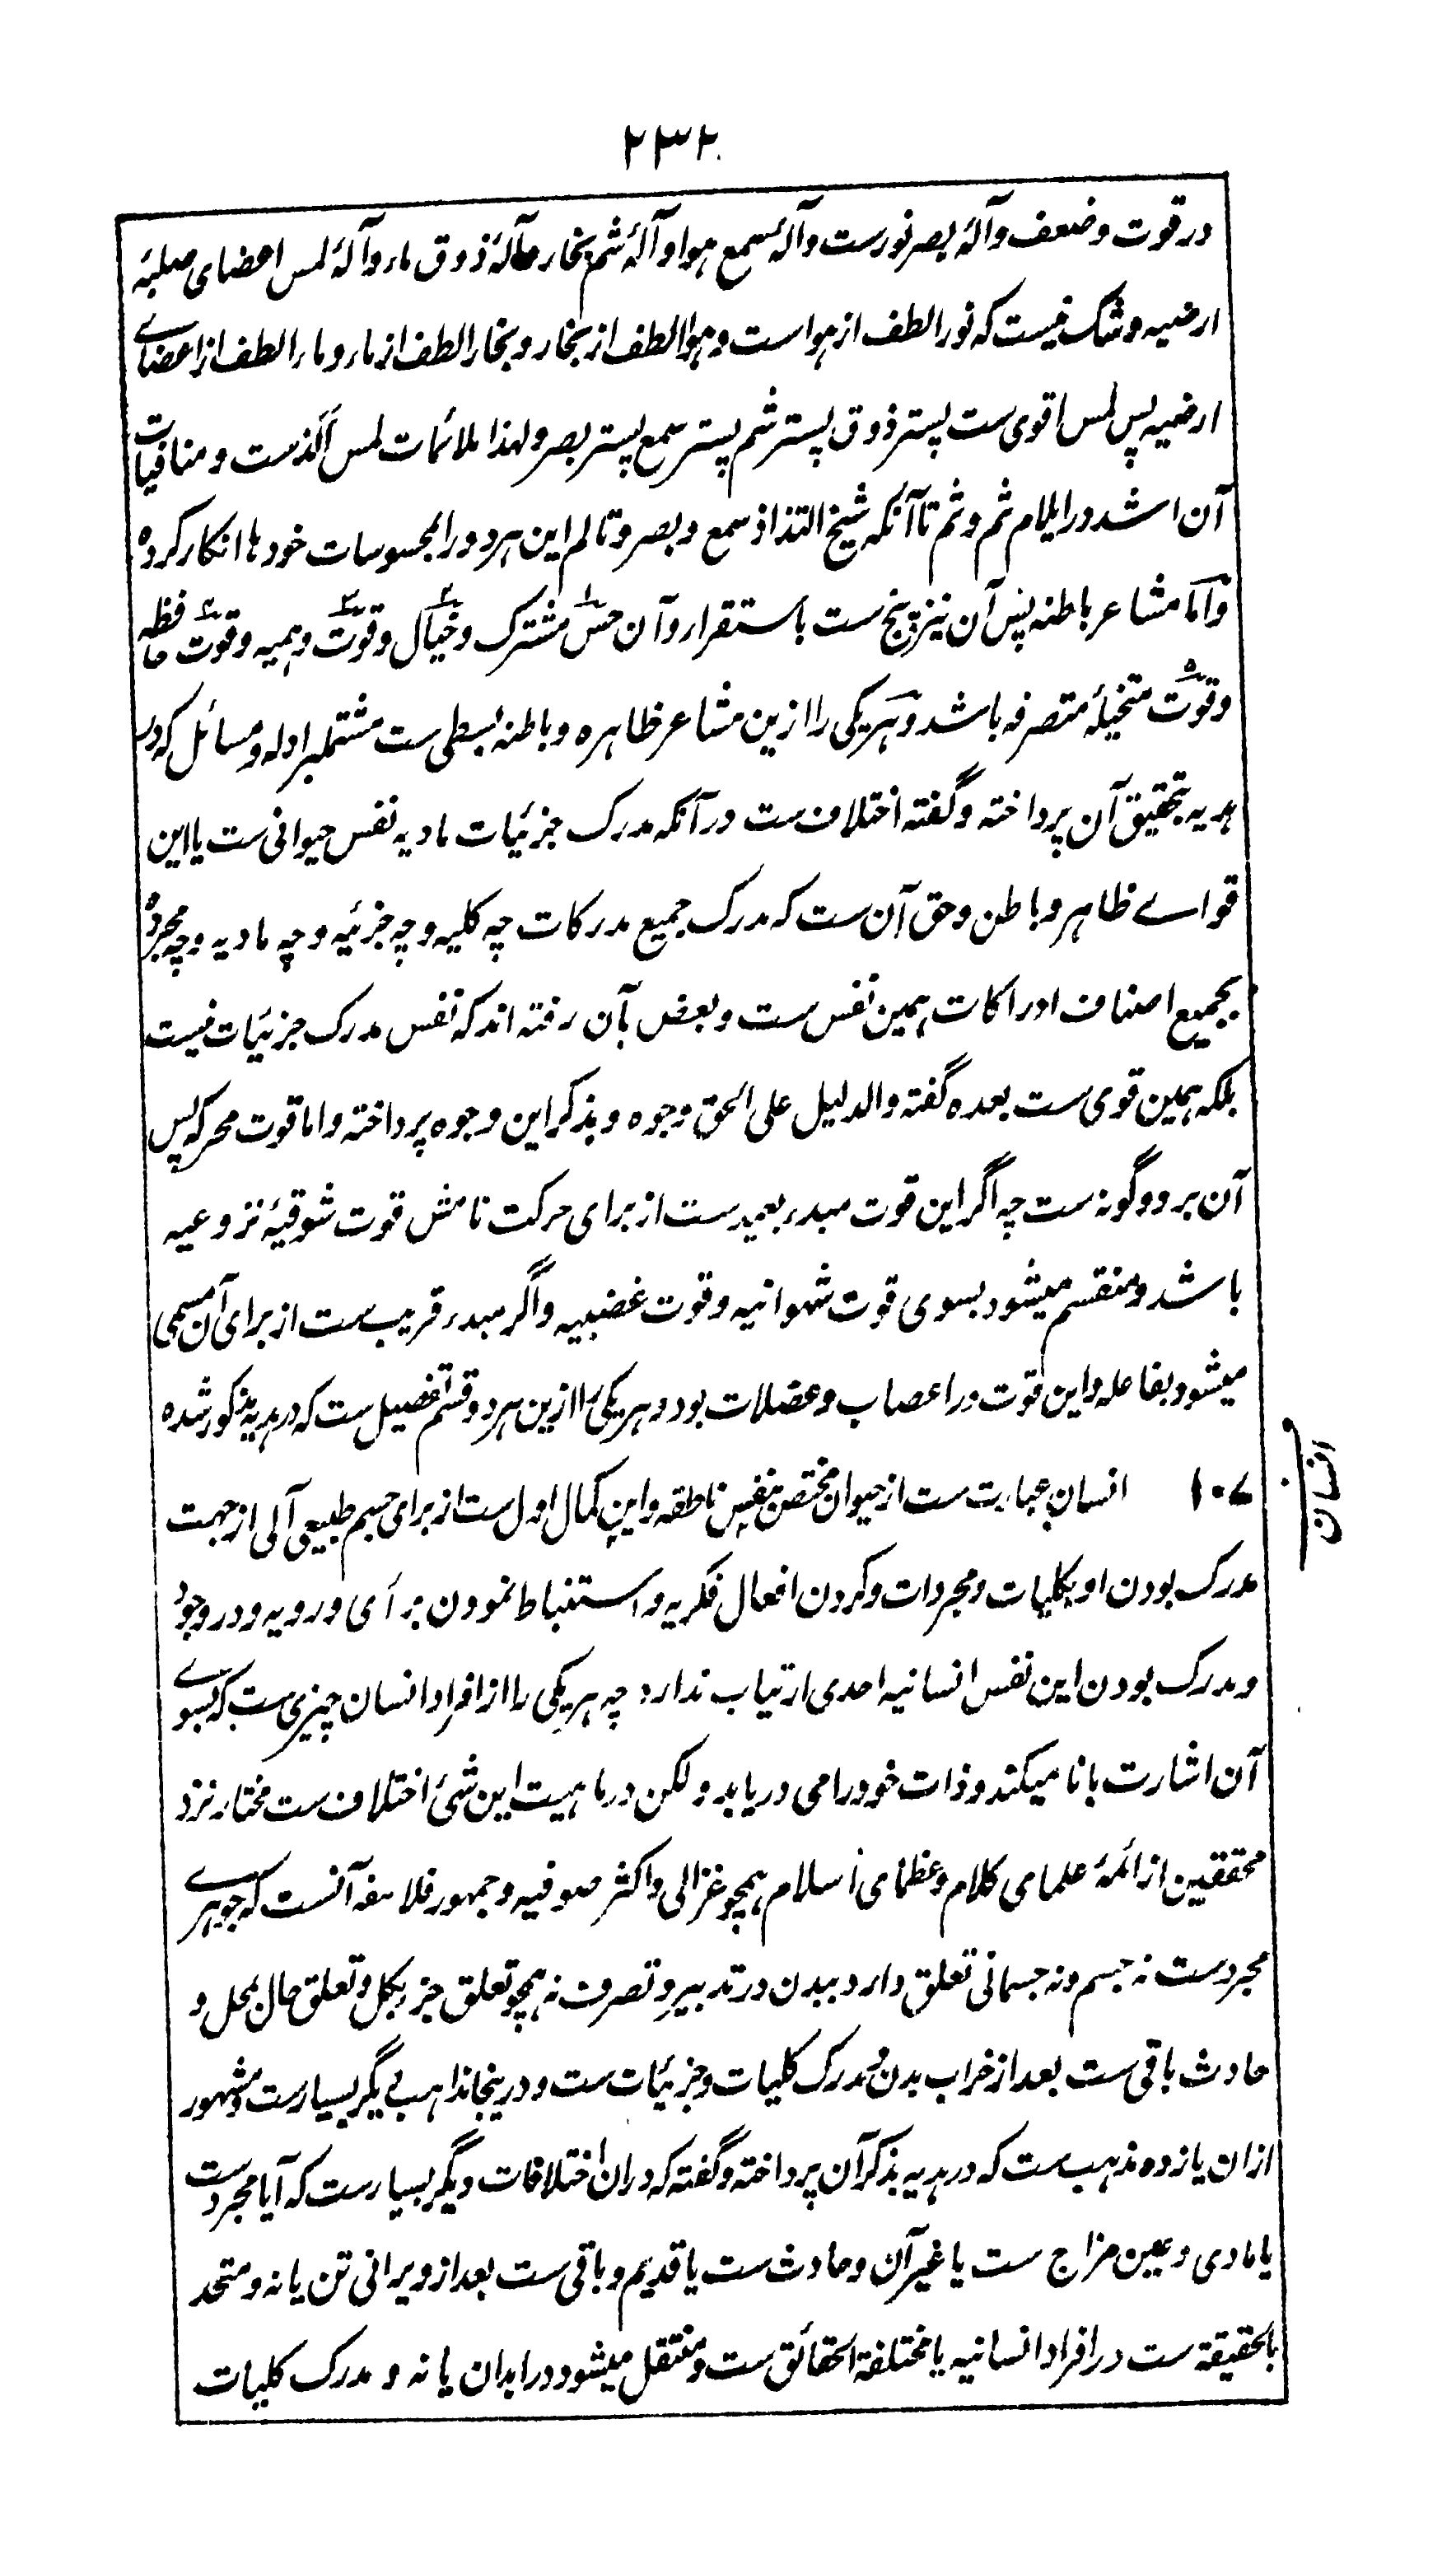 ۲۳۲
در قوت و ضعف و آلهٔ بصر نورست و آلهٔ سمع هوا و آلهٔ شم بخار و آلهٔ ذوق ماء و آلهٔ لمس اعضای صلبهٔ
ارضیه و شک نیست که نور الطف از هواست و هوا الطف از بخار و بخار الطف از ماء و ماء الطف از اعضاے
ارضیه پس لمس اقوی ست پستر ذوق پستر شم پستر سمع پستر بصر و لهذا ملائمات لمس اَلذست و منافیات
آن اشد در ایلام ثم و ثم تا آنکه شیخ التذاذ سمع و بصر و تالم این هر دو را بمحسوسات خودها انکار کرده
و اَما مشاعر باطنه پس آن نیز پنج ست باستقرار و آن حس۱ مشترک و خیال۲ و قوت۳ وهمیه و قوت۴ حافظه
و قوت۵ متخیلهٔ متصرفه باشد و هر یکی را ازین مشاعر ظاهره و باطنه بسطی ست مشتملبر ادله و مسائل که در
هدیه بتحقیق آن پرداخته و گفته اختلاف ست در آنکه مدرک جزئیات مادیه نفس حیوانی ست یا این
قواے ظاهر و باطن و حق آن ست که مدرک جمیع مدرکات چه کلیه و چه جزئیه و چه مادیه و چه مجرده
بجمیع اصناف ادراکات همین نفس ست و بعض بآن رفته اند که نفس مدرک جزئیات نیست
بلکه همین قوی ست بعده گفته والدلیل علی الحق وجوه و بذکر این وجوه پرداخته و اما قوت محرکه پس
آن بر دو گونه ست چه اگر این قوت مبدء بعیدست از برای حرکت نامش قوت شوقیهٔ نزوعیه
باشد و منقسم میشود بسوی قوت شهوانیه و قوت غضبیه و اگر مبدء قریب ست از برای آن مسمی
میشود بفاعله و این قوت در اعصاب و عضلات بود و هر یکی را ازین هر دو قسم تفصیل ست که در هدیه مذکور شده
۱۰۷ انسان عبارت ست از حیوان مختص بنفس ناطقه و این کمال اول ست از برای جسم طبیعی آلی از جهت
انسان
مدرک بودن او بکلیات و مجردات و کردن افعال فکریه و استنباط نمودن براَی و رویه و در وجود
و مدرک بودن این نفس انسانیه احدی ارتیاب ندارد چه هر یکی را از افراد انسان چیزی ست که بسوے
آن اشارت بانا میکند و ذات خود را می دریابد و لکن در ماهیت این شیٔ اختلاف ست مختار نزد
محققین از ائمهٔ علمای کلام و عظمای اسلام همچو غزالی و اکثر صوفیه و جمهور فلاسفه آنست که جوهرے
مجردست نه جسم و نه جسمانی تعلق دارد ببدن در تدبیر و تصرف نه همچو تعلق جزء بکل و تعلق حال بمحل و
حادث باقی ست بعد از خراب بدن و مدرک کلیات و جزئیات ست و درینجا مذاهب دیگر بسیارست و مشهور
ازان یازده مذهب ست که در هدیه بذکر آن پرداخته و گفته که دران اختلافات دیگر بسیارست که آیا مجردست
یا مادی و عین مزاج ست یا غیر آن و حادث ست یا قدیم و باقی ست بعد از ویرانی تن یا نه و متحد
بالحقیقة ست در افراد انسانیه یا مختلفة الحقائق ست و منتقل میشود در ابدان یا نه و مدرک کلیات